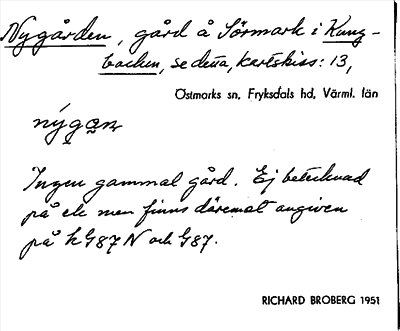 Nygården, gård å Sörmark i Kung-
backen, se detta, kartskiss: 13,
Östmarks sn, Fryksdals hd, Värml. län
nýgɑn
Ingen gammal gård. Ej betecknad
på ek men finns däremot angiven
på kG87N och G87.
RICHARD BROBERG 1951